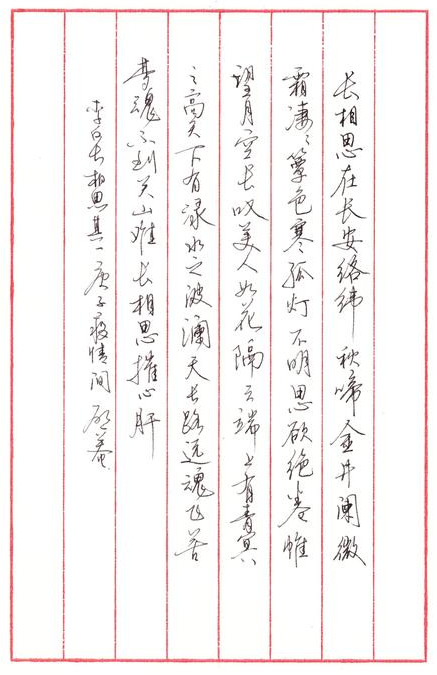 长相思在长安络纬秋啼金井阑微
霜凄〻簟色寒孤灯不明思欲绝卷帷
望月空长叹美人如花隔云端上有青冥
之高天下有渌水之波澜天长路远魂飞苦
梦魂不到关山难长相思摧心肝
李白长相思其一庚子疫情间 菴